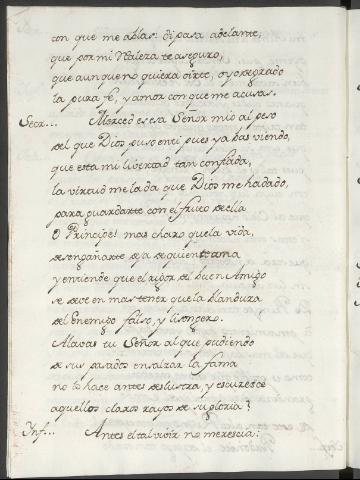 con que me ablas: di pasa adelante,
que por mi Naleza te aseguro,
que aunque no quiera oirte, oyo de grado
la pura fe, y amor con que me acusas.
Secr... Merced es esa Señor mio al peso
del que Dios puso en ti pues ya bas viendo,
que esta mi libertad tan confiada,
la virtud me la da que Dios me ha dado,
para guardarte con el fruto de ella
O Principe! mas charo que la vida,
desengañarte deja de quien te ama
y entiende que el rigor del buen Amigo
se deve en mas tener que la blandura
del Enemigo falso, y lisongero.
Alavas tu Señor al que pudiendo
de sus pasados ensalzar la fama
no lo hace antes deslustra, y escurece
aquellos claros rayos de su gloria?
Inf... Antes el tal vivir no merescia: